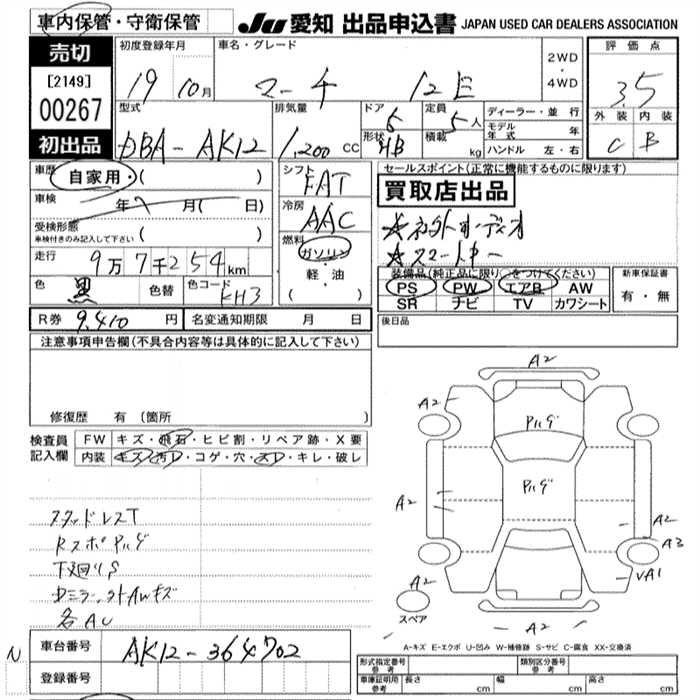 車内保管・守衛保管
JU 愛知 出品申込書 JAPAN USED CAR DEALERS ASSOCIATION
売切
[2149]
00267
初出品
初度登録年月
19 10月
車名・グレード
マーチ 12E
2WD
・
4WD
評価点
3.5
外装 内装
C B
型式
DBA-AK12
排気量
1,200 CC
ドア
5
形状
HB
定員
5人
積載
kg
ディーラー・並行
モデル年式 年
ハンドル 左・右
車歴
自家用・( )
車検
年 月( 日)
受検形態
車検付きのみ記入して下さい ( )
走行
9万7千254km
色
黒
色替
色コード
KH3
シフト
FAT
冷房
AAC
燃料
ガソリン
・
軽・油
( )
セールスポイント(正常に機能するものに限ります)
買取店出品
☆ネクトオーディオ
☆スマートキー
装備品(純正品に限り○をつけてください)
PS PW エアB AW
SR ナビ TV カワシート
新車保証書
有・無
後日品
R券 9,410 円
名変通知期限 月 日
注意事項申告欄(不具合内容等は具体的に記入して下さい)
修復歴 有(箇所 )
検査員記入欄
FW キズ・飛石・ヒビ割・リペア跡・X要
内装 キズ・汚レ・コゲ・穴・スレ・キレ・破レ
スタッドレスT
RスポPハゲ
下廻りS
各AU
A2
A2
Pハゲ
Pハゲ
A2
A2
A3
A2
VA1
スペア
A2
A-キズ E-エクボ U-凹み W-補修跡 S-サビ C-腐食 XX-交換済
N
車台番号 AK12-364702
登録番号
形式指定番号 参考
類別区分番号 参考
車庫証明用 参考 長さ cm 幅 cm 高さ cm